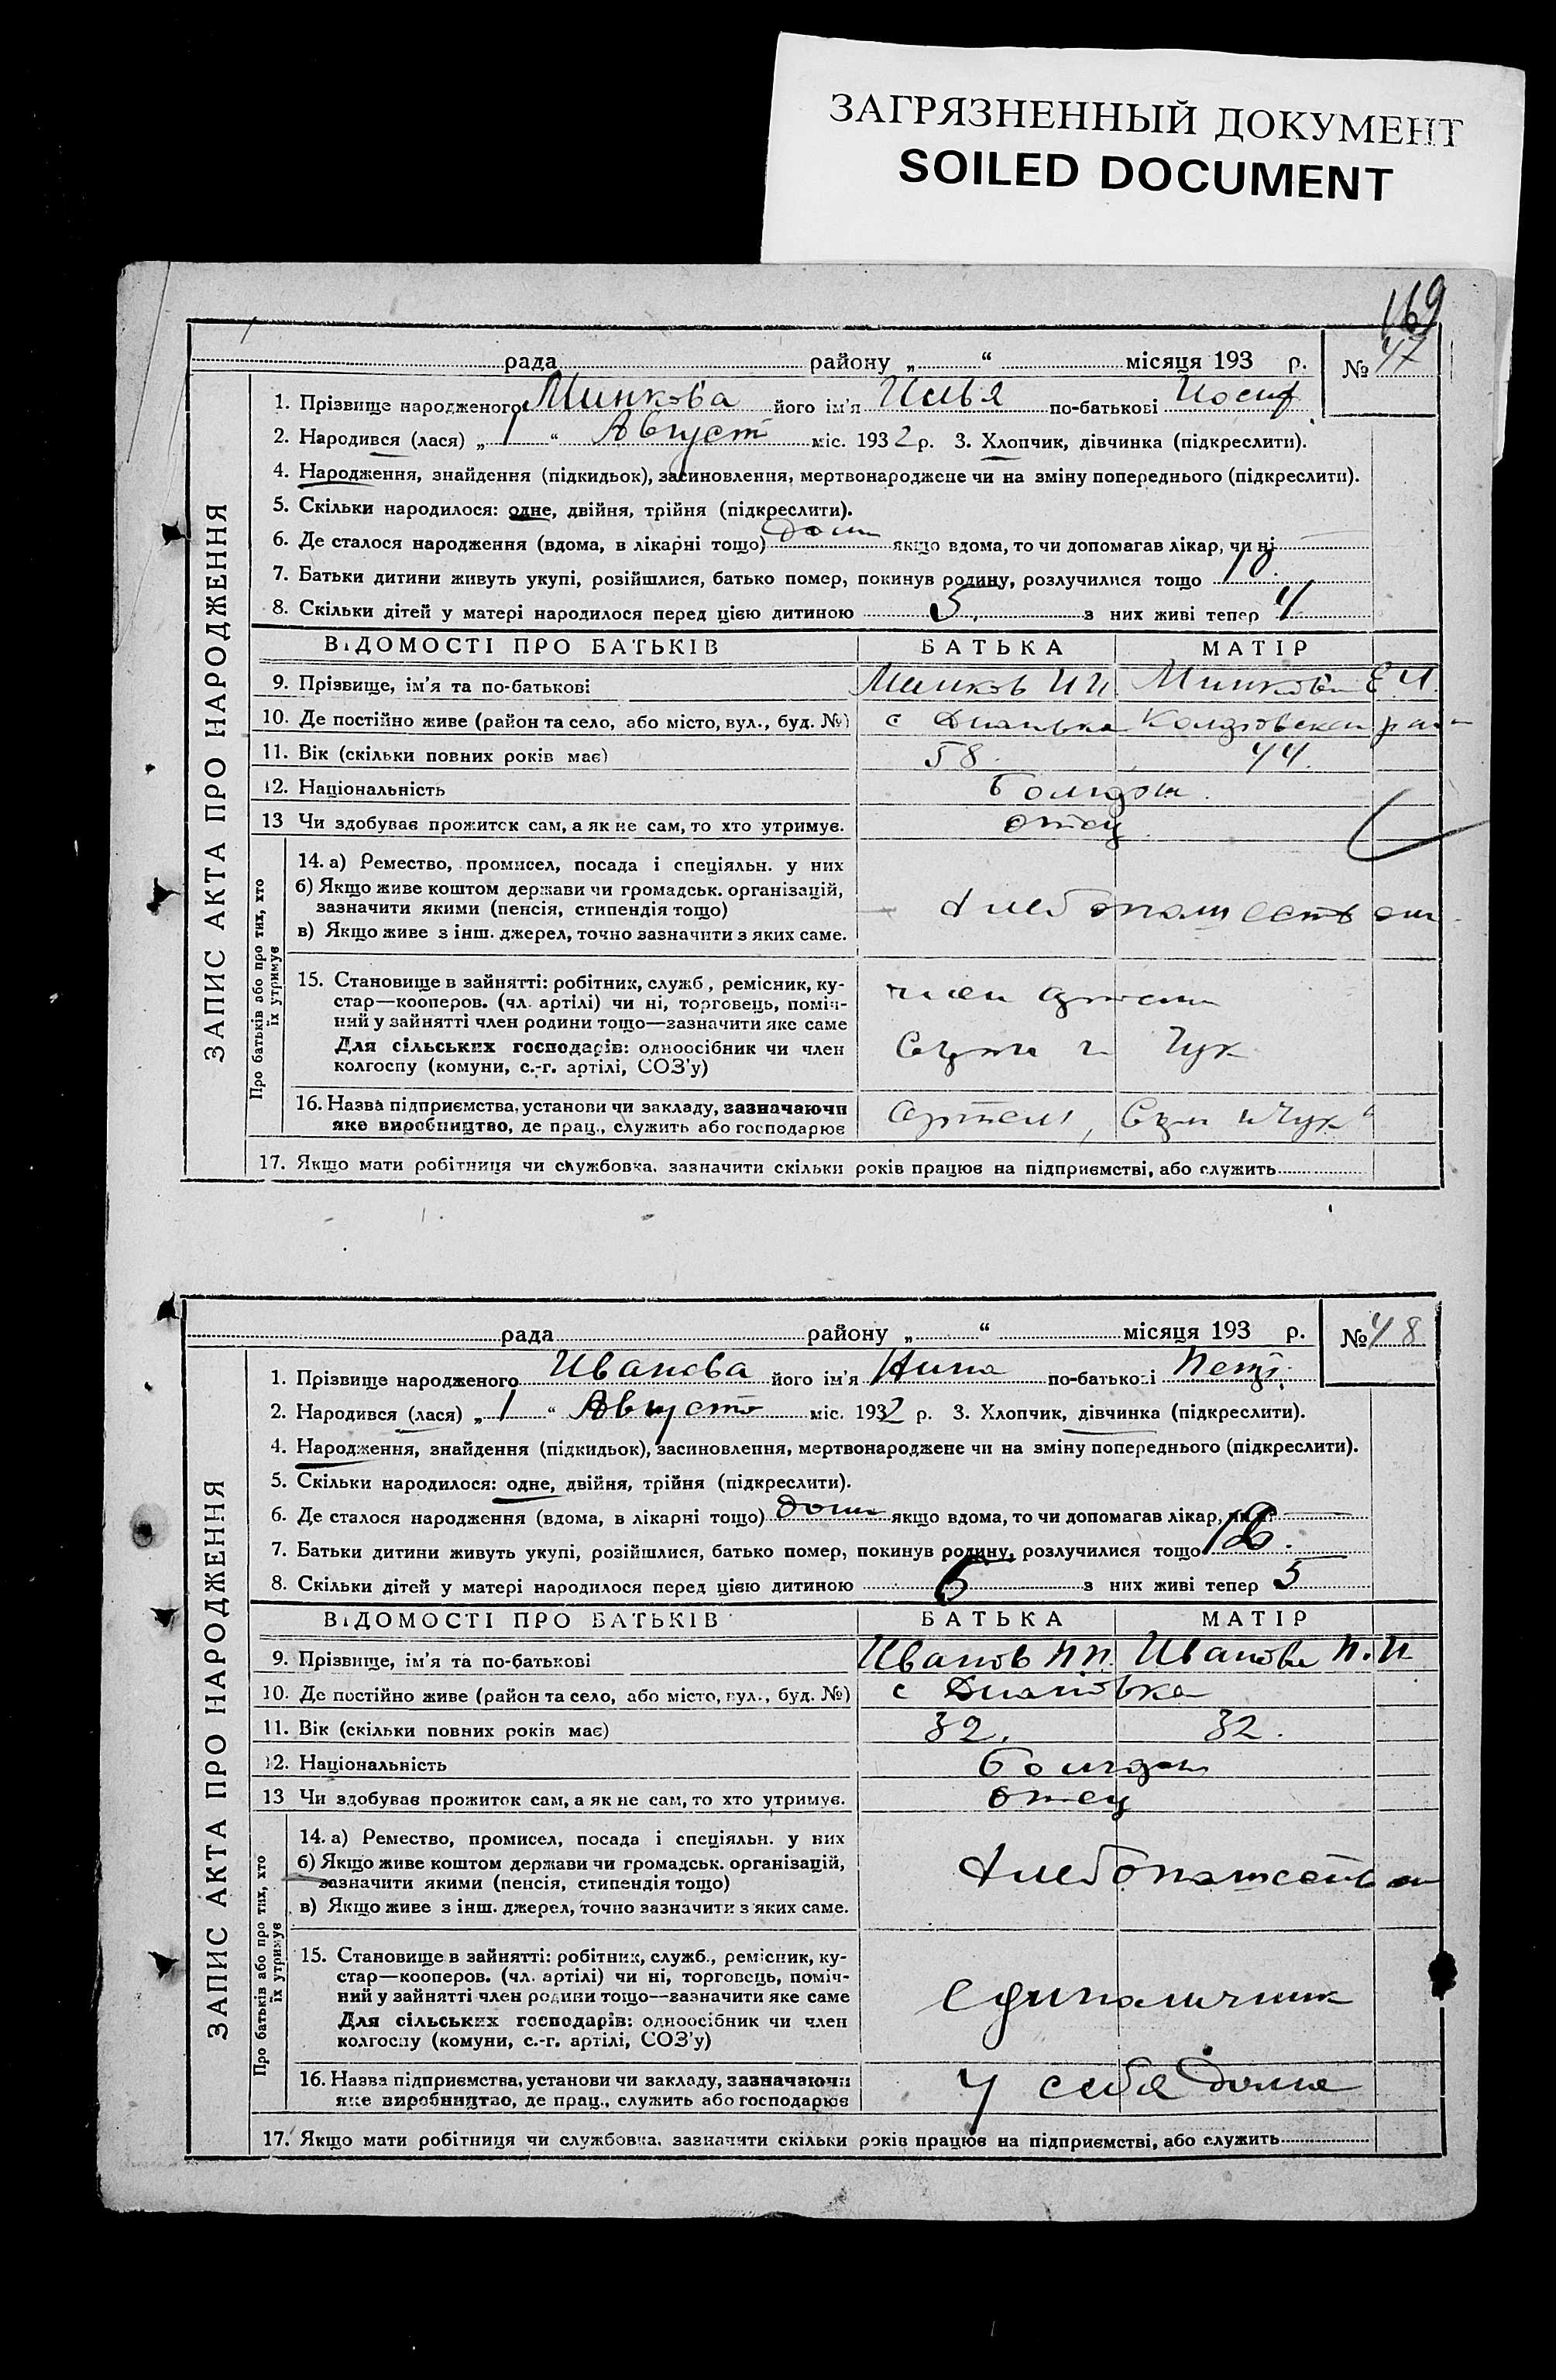 ЗАГРЯЗНЕННЫЙ ДОКУМЕНТ
SOILED DOCUMENT
169
рада району „ “ місяця 193 р. № 47
1. Прізвище народженого Минкова його ім'я Илья по-батькові Иосиф
2. Народився (лася) „ 1 “ Август міс. 1932 р. 3. Хлопчик, дівчинка (підкреслити).
4. Народження, знайдення (підкидьок), засиновлення, мертвонароджене чи на зміну попереднього (підкреслити).
5. Скільки народилося: одне, двійня, трійня (підкреслити).
6. Де сталося народження (вдома, в лікарні тощо) дом якщо вдома, то чи допомагав лікар, чи ні
7. Батьки дитини живуть укупі, розійшлися, батько помер, покинув родину, розлучилися тощо 10.
8. Скільки дітей у матері народилося перед цією дитиною 5. з них живі тепер 4
ВІДОМОСТІ ПРО БАТЬКІВ БАТЬКА МАТІР
9. Прізвище, ім'я та по-батькові Минков И И Минкова Е. И.
10. Де постійно живе (район та село, або місто, вул., буд. №) с
11. Вік (скільки повних років має) 58. 44.
12. Національність
13 Чи здобував прожиток сам, а як не сам, то хто утримує. отец
14. а) Ремество, промисел, посада і спеціяльн. у них
б) Якщо живе коштом держави чи громадськ. організацій,
зазначити якими (пенсія, стипендія тощо)
в) Якщо живе з інш. джерел, точно зазначити з яких саме.
15. Становище в зайнятті: робітник, служб, ремісник, ку-
стар—кооперов. (чл. артілі) чи ні, торговець, поміч-
ний у зайнятті член родини тощо—зазначити яке саме
член артели
Для сільських господарів: одноосібник чи член
колгоспу (комуни, с.-г. артілі, СОЗ'у)
16. Назва підприємства, установи чи закладу, зазначаючи
яке виробництво, де прац., служить або господарює
17. Якщо мати робітниця чи службовка, зазначити скільки років працює на підприємстві, або служить
ЗАПИС АКТА ПРО НАРОДЖЕННЯ
Про батьків або про тих, хто
їх утримує
рада району „ “ місяця 193 р. № 48
1. Прізвище народженого Иванова його ім'я Нина по-батькові Петр.
2. Народився (лася) „ 1 “ Августа міс. 1932 р. 3. Хлопчик, дівчинка (підкреслити).
4. Народження, знайдення (підкидьок), засиновлення, мертвонароджене чи на зміну попереднього (підкреслити).
5. Скільки народилося: одне, двійня, трійня (підкреслити).
6. Де сталося народження (вдома, в лікарні тощо) дом якщо вдома, то чи допомагав лікар, чи ні
7. Батьки дитини живуть укупі, розійшлися, батько помер, покинув родину, розлучилися тощо
8. Скільки дітей у матері народилося перед цією дитиною 6 з них живі тепер 5
ВІДОМОСТІ ПРО БАТЬКІВ БАТЬКА МАТІР
9. Прізвище, ім'я та по-батькові Иванов П П. Иванова П. И
10. Де постійно живе (район та село, або місто, вул., буд. №) с Диановка
11. Вік (скільки повних років має) 32. 32.
12. Національність
13 Чи здобував прожиток сам, а як не сам, то хто утримує. отец
14. а) Ремество, промисел, посада і спеціяльн. у них
б) Якщо живе коштом держави чи громадськ. організацій,
зазначити якими (пенсія, стипендія тощо)
в) Якщо живе з інш. джерел, точно зазначити з яких саме.
15. Становище в зайнятті: робітник, служб., ремісник, ку-
стар—кооперов. (чл. артілі) чи ні, торговець, поміч-
ний у зайнятті член родини тощо—зазначити яке саме
Для сільських господарів: одноосібник чи член
колгоспу (комуни, с.-г. артілі, СОЗ'у)
Единаличник
16. Назва підприємства, установи чи закладу, зазначаючи
яке виробництво, де прац., служить або господарює
У себя дома
17. Якщо мати робітниця чи службовка, зазначити скільки років працює на підприємстві, або служить
ЗАПИС АКТА ПРО НАРОДЖЕННЯ
Про батьків або про тих, хто
їх утримує